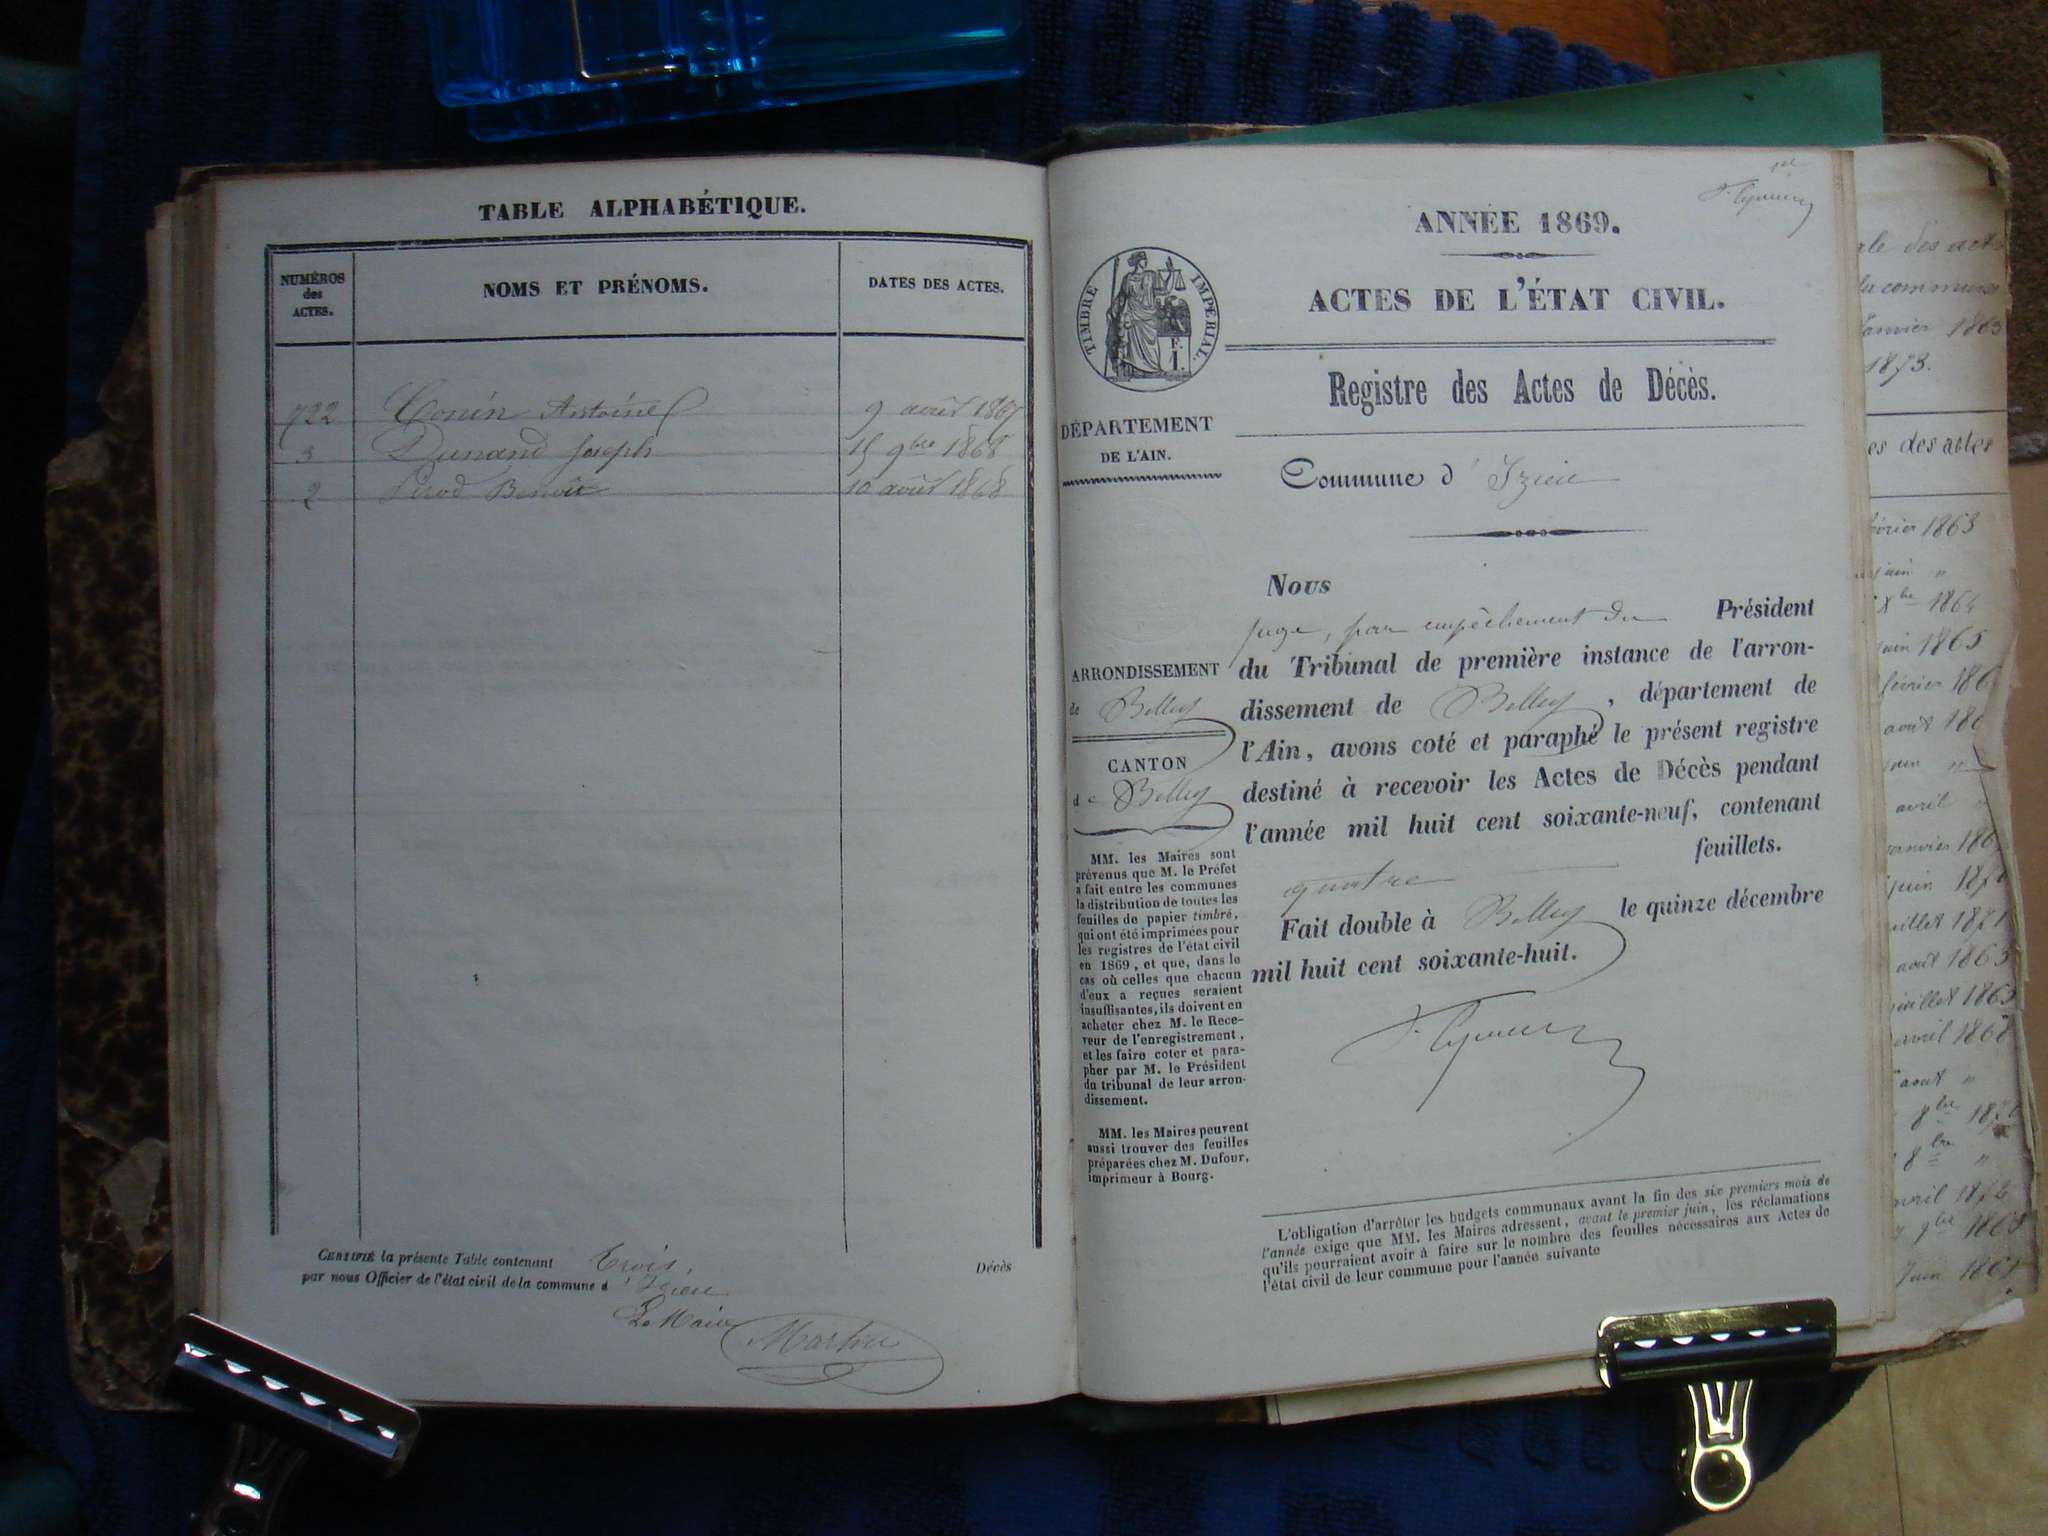 TABLE ALPHABÉTIQUE.
NUMÉROS
des
ACTES.
NOMS ET PRÉNOMS.
DATES DES ACTES.
Antoine 9 août 1867
3 Dunand Joseph 15 9bre 1868
2 Benoit 10 août 1868
CERTIFIÉ la présente Table contenant Trois Décès
par nous Officier de l'état civil de la commune d'Izieu
Le Maire
Martin
ANNÉE 1869.
ACTES DE L'ÉTAT CIVIL.
TIMBRE IMPÉRIAL.
F.
1.
Registre des Actes de Décès.
DÉPARTEMENT
DE L'AIN.
Commune d'Izieu
Nous
juge, par empêchement du Président
du Tribunal de première instance de l'arron-
dissement de Belley, département de
l'Ain, avons coté et paraphé le présent registre
destiné à recevoir les Actes de Décès pendant
l'année mil huit cent soixante-neuf, contenant
quatre feuillets.
Fait double à Belley le quinze décembre
mil huit cent soixante-huit.
ARRONDISSEMENT
de Belley
CANTON
de Belley
MM. les Maires sont
prévenus que M. le Préfet
a fait entre les communes
la distribution de toutes les
feuilles de papier timbré,
qui ont été imprimées pour
les registres de l'état civil
en 1869, et que, dans le
cas où celles que chacun
d'eux a reçues seraient
insuffisantes, ils doivent en
acheter chez M. le Rece-
veur de l'enregistrement,
et les faire coter et para-
pher par M. le Président
du tribunal de leur arron-
dissement.
MM. les Maires peuvent
aussi trouver des feuilles
préparées chez M. Dufour,
imprimeur à Bourg.
L'obligation d'arrêter les budgets communaux avant la fin des six premiers mois de
l'année exige que MM. les Maires adressent, avant le premier juin, les réclamations
qu'ils pourraient avoir à faire sur le nombre des feuilles nécessaires aux Actes de
l'état civil de leur commune pour l'année suivante
des act
la commune
janvier 1863
1873.
es des actes
février 1863
juin "
Xbre 1864
juin 1865
février 186
août 186
avril "
janvier 186
juin 187
juillet 1871
août 1863
juillet 1865
avril 1868
août "
8bre 1870
8bre "
avril 1872
9bre 1868